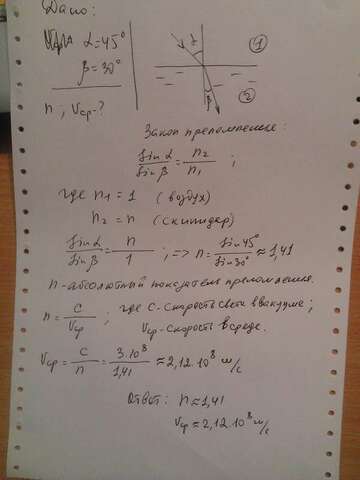 Дано:
α=45°
β=30°
n ; Vср-?
α
1
β
2
Закон преломления:
sin α / sin β = n2 / n1 ;
где n1 = 1 (воздух)
n2 = n (скипидар)
sin α / sin β = n / 1 ; => n = sin 45° / sin 30° ≈ 1,41
n-абсолютный показатель преломления.
n = c / Vср ; где c-скорость света в вакууме;
Vср-скорость в среде.
Vср = c / n = 3·10⁸ / 1,41 ≈ 2,12·10⁸ м/с
Ответ: n ≈ 1,41
Vср ≈ 2,12·10⁸ м/с